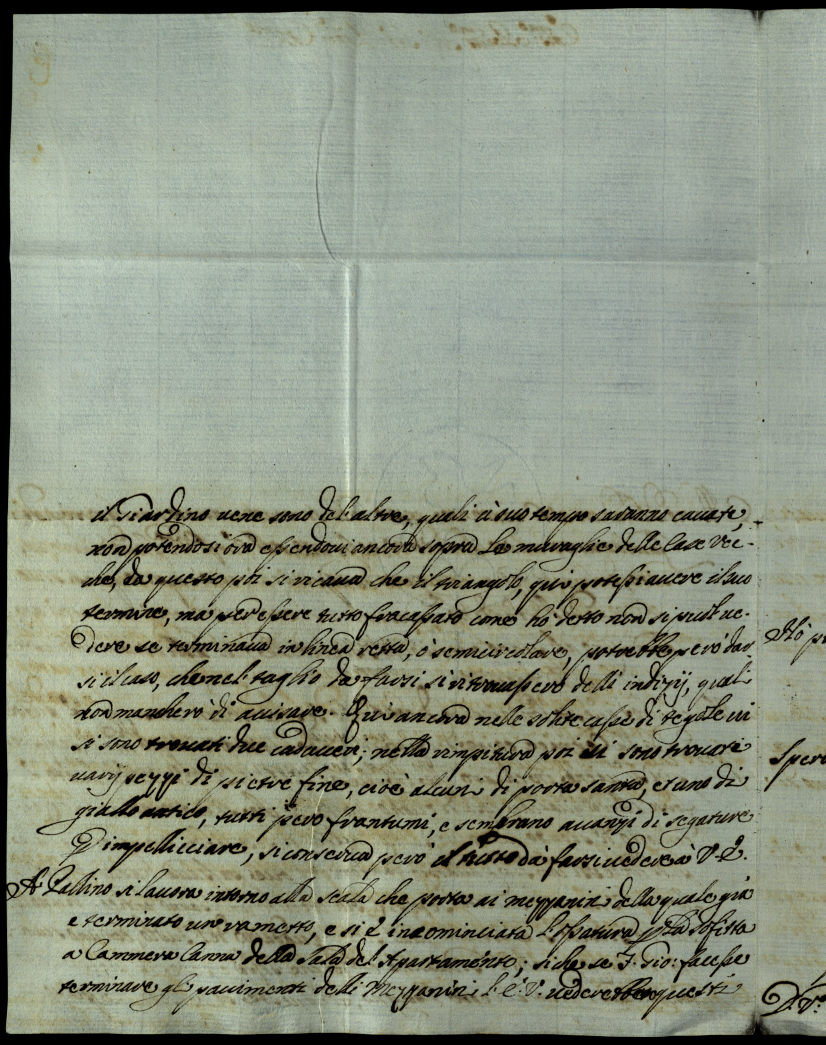 il Giardino vene sono del'altre, quali à suo tempo saranno cavate,
non potendosi ora essendovi ancora sopra Le muraglie delle Case vec-
chie, da questo poi si ricava che il triangolo, qui potessi avere il suo
termine, ma per essere tutto fracassato come hò detto non si può ve-
dere se terminava in linea retta, ò semicircolare, potrebbe però dar
si il caso, che nel taglio da farsi si ritrovassero delli indizij, quali
non mancherò di avisare. Qui ancora nelle solite casse di tegole vi
si sono trovati due cadaveri; nella rimpitura poi vi sono trovati
varij pezzi di pietre fine, cioè alcuni di porta santa, et uno di
giallo antico, tutti però frantumi, e sembrano avanzi di segature
D'impellicciare, si conserva però il tutto da farsi vedere à V. E.
A Pallino si lavora intorno alla scala che porta ai mezzanini della quale già
è terminato un rametto, e si è incominciata l'ossatura p la sofitta
a Cammera Canna della Sala del Apartamento; siche se F. Gio: facesse
terminare gl pavimenti delli Mezzanini l'E. V. vederebbe questi
Hò pr
Spera
D. V.